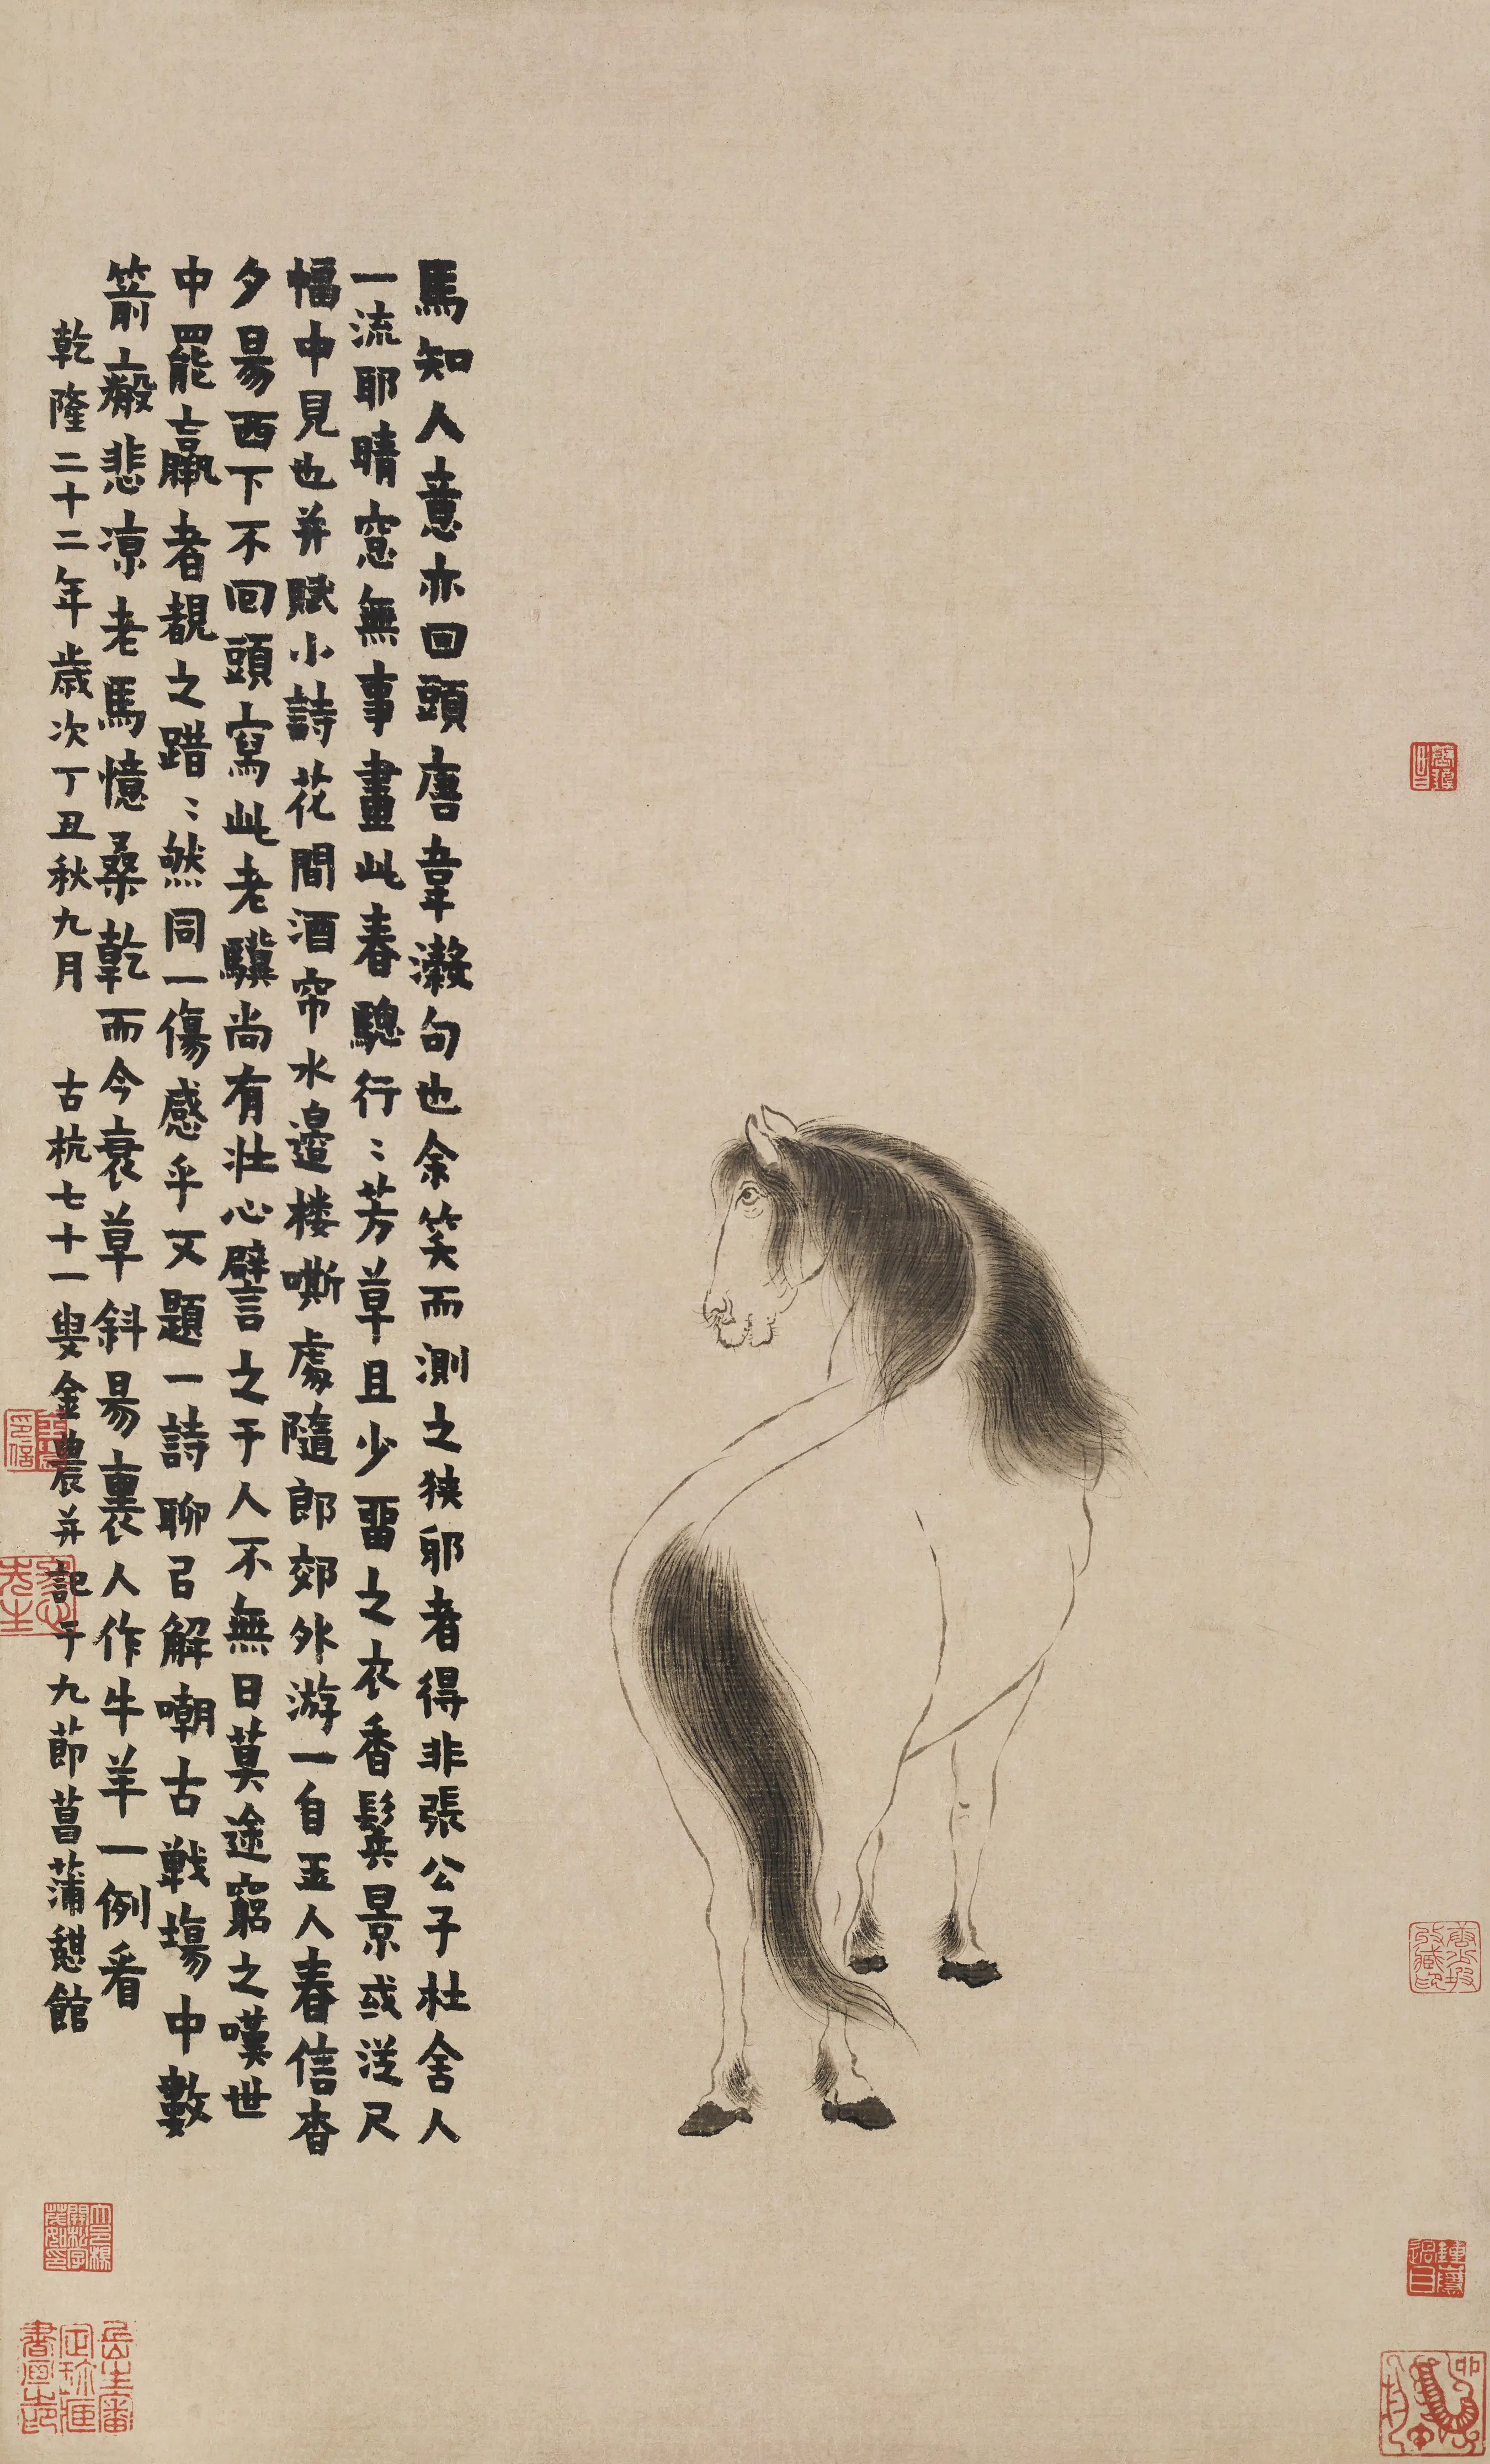 馬知人意亦回頭唐韋瀔句也余笑而測之狹邪者得非張公子杜舍人
一流耶晴窓無事畫此春驄行〻芳草且少畱之衣香鬓景或從尺
幅中見也并賦小詩花間酒帘水邊楼嘶處隨郎郊外游一自玉人春信杳
夕昜西下不回頭寫此老驥尚有壯心譬言之于人不無日莫途窮之嘆世
中罷羸者覩之踖〻然同一傷感乎又題一詩聊㠯解嘲古戰塲中數
箭瘢悲凉老馬憶桑乾而今衰草斜昜裏人作牛羊一例看
乾隆二十二年歲次丁丑秋九月 古杭七十一叟金農并記于九莭菖蒲憇館